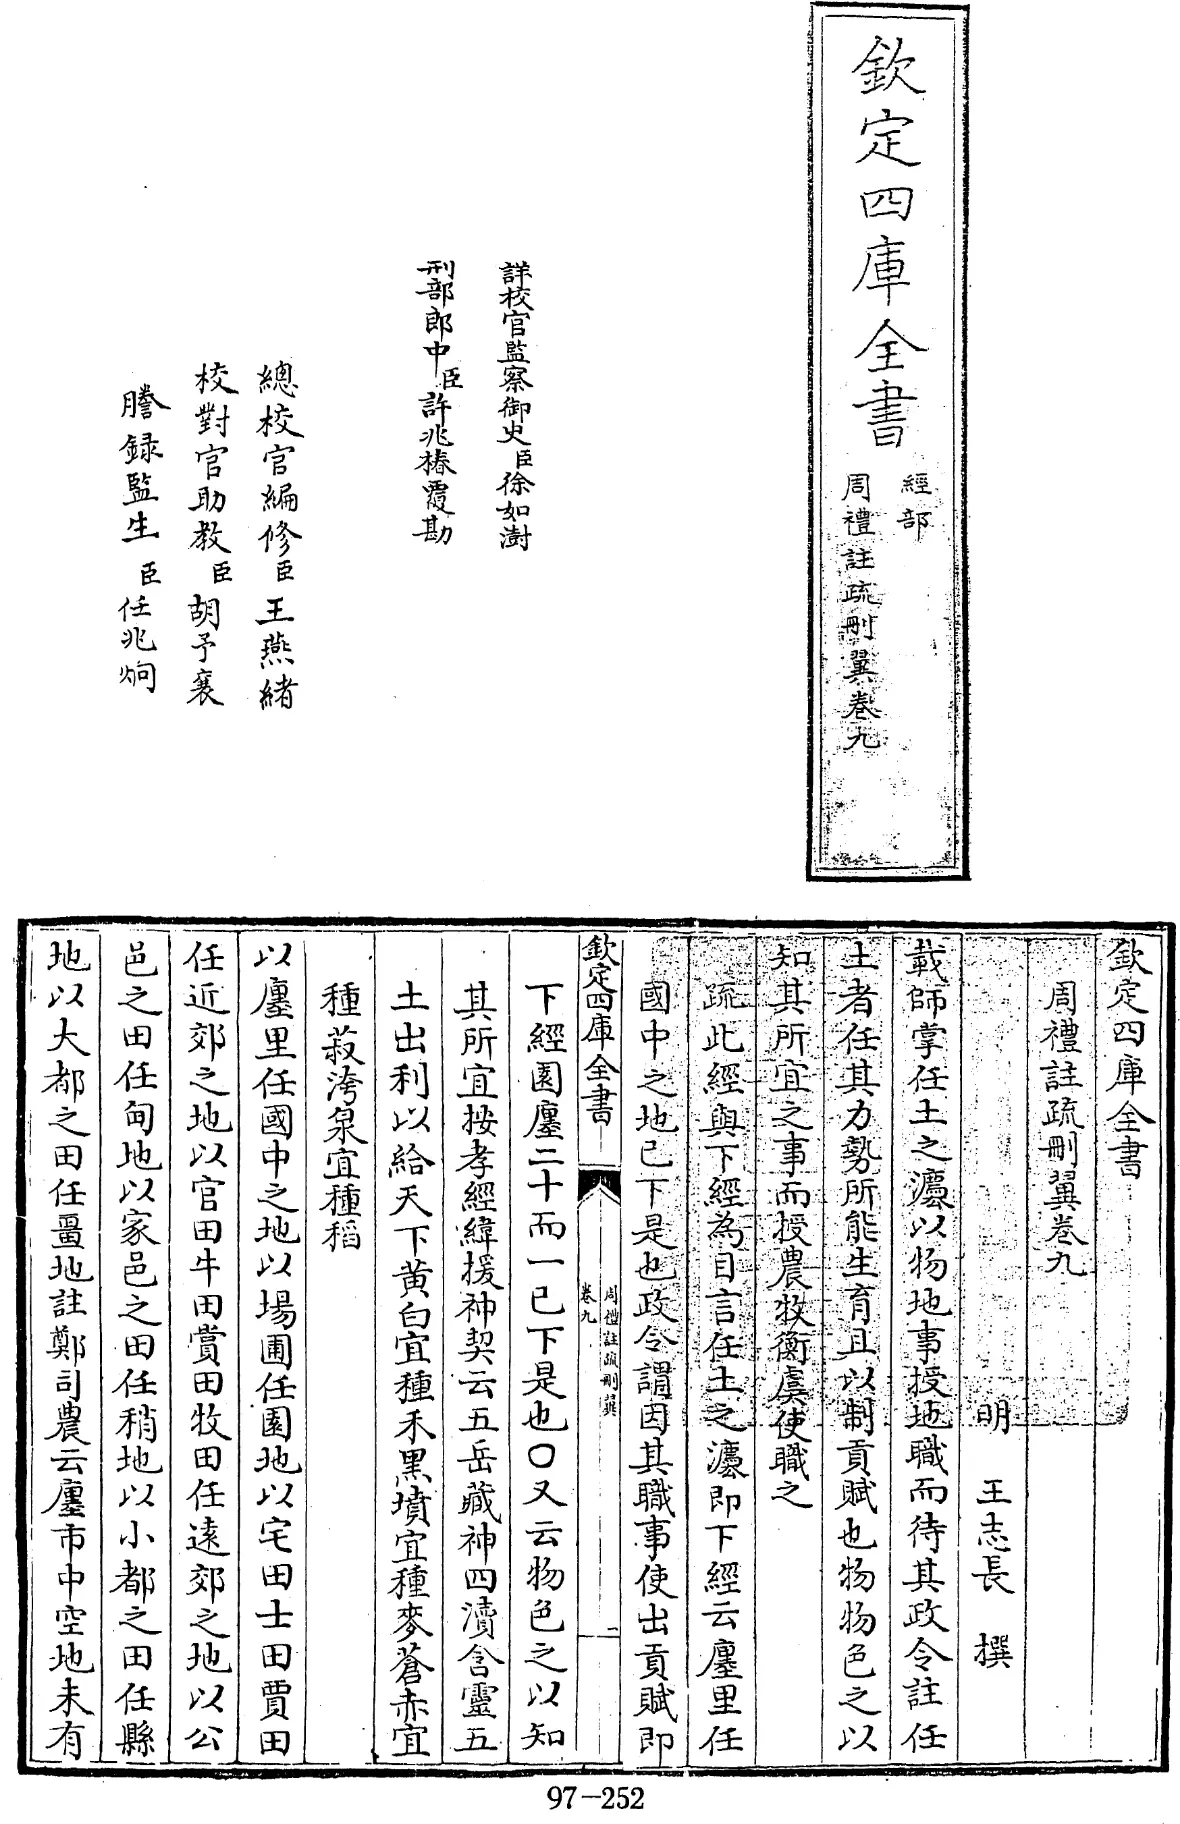 欽定四庫全書
經部
周禮註疏刪翼卷九
詳校官監察御史臣徐如澍
刑部郎中臣許兆椿覆勘
總校官編修臣王燕緒
校對官助教臣胡予襄
謄錄監生臣任兆炯
欽定四庫全書
周禮註疏刪翼卷九
明 王志長 撰
載師掌任土之灋以物地事授地職而待其政令註任
土者任其力勢所能生育且以制貢賦也物物色之以
知其所宜之事而授農牧衡虞使職之
疏此經與下經為目言任土之灋即下經云廛里任
國中之地已下是也政令謂因其職事使出貢賦即
欽定四庫全書
周禮註疏刪翼
卷九
一
下經園廛二十而一已下是也〇又云物色之以知
其所宜按孝經緯援神契云五岳藏神四瀆含靈五
土出利以給天下黄白宜種禾黑墳宜種麥蒼赤宜
種菽洿泉宜種稻
以廛里任國中之地以場圃任園地以宅田士田賈田
任近郊之地以官田牛田賞田牧田任遠郊之地以公
邑之田任甸地以家邑之田任稍地以小都之田任縣
地以大都之田任畺地註鄭司農云廛市中空地未有
97-252